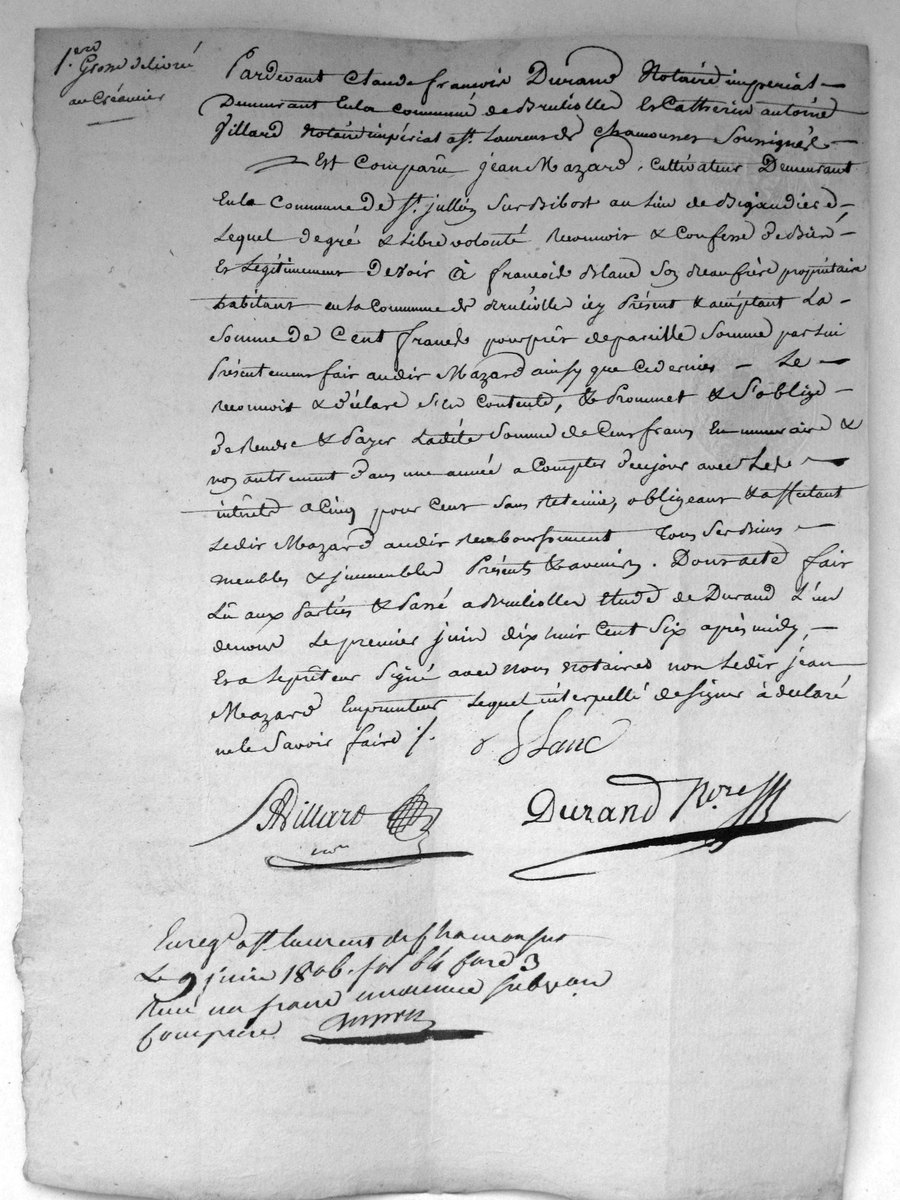 1.ere
Grosse delivré
au Créancier
Pardevant Claude françois Durand Notaire imperial
Demeurant En la Commune de Brulliolles Et Catherin antoine
Villard notaire impérial a St. Laurent de Chamousset Soussignés
Est Comparu jean Mazard, Cultivateur Demeurant
En la Commune De St. jullien Sur Bibost au lieu de Bigaudiere
Lequel de gré & Libre volonté Reconnoit & Confesse De Bien
Et Legitimement Devoir à françois Blanc Son Beaufrère propriétaire
habitant en la Commune de Brulliolle icy Présent & acceptant La
Somme De Cent francs pour prêt de pareille Somme par lui
Présentement fait audit Mazard ainsy que Ce dernier Le
reconnoit & déclare S'en Contente, & Prommet & S'oblige
De Rendre & Payer Ladite Somme de Cent francs En numeraire &
non autrement Dans une année a Compter De ce jour avec Les
intérêts a Cinq pour Cent Sans Retenue, obligeant & affectant
Ledit Mazard audit remboursement Tous Ses Biens
meubles & immeubles Présents & avenirs. Dont acte fait
Lû aux Parties & Passé a Brulliolles Etude de Durand L'un
de nous Le premier juin dix huit Cent Six après midy,
Et a Le prêteur Signé avec Nous notaires non Ledit jean
Mazard Emprunteur Lequel interpellé de Signer à déclaré
ne le Savoir faire /.
Blanc
Villard
nre
Durand Nore
Enreg.é a St. Laurent de Chamousset
Le 9 juin 1806. fol 64 Case 3
Reçu un franc dix centimes Subvon
Comprise